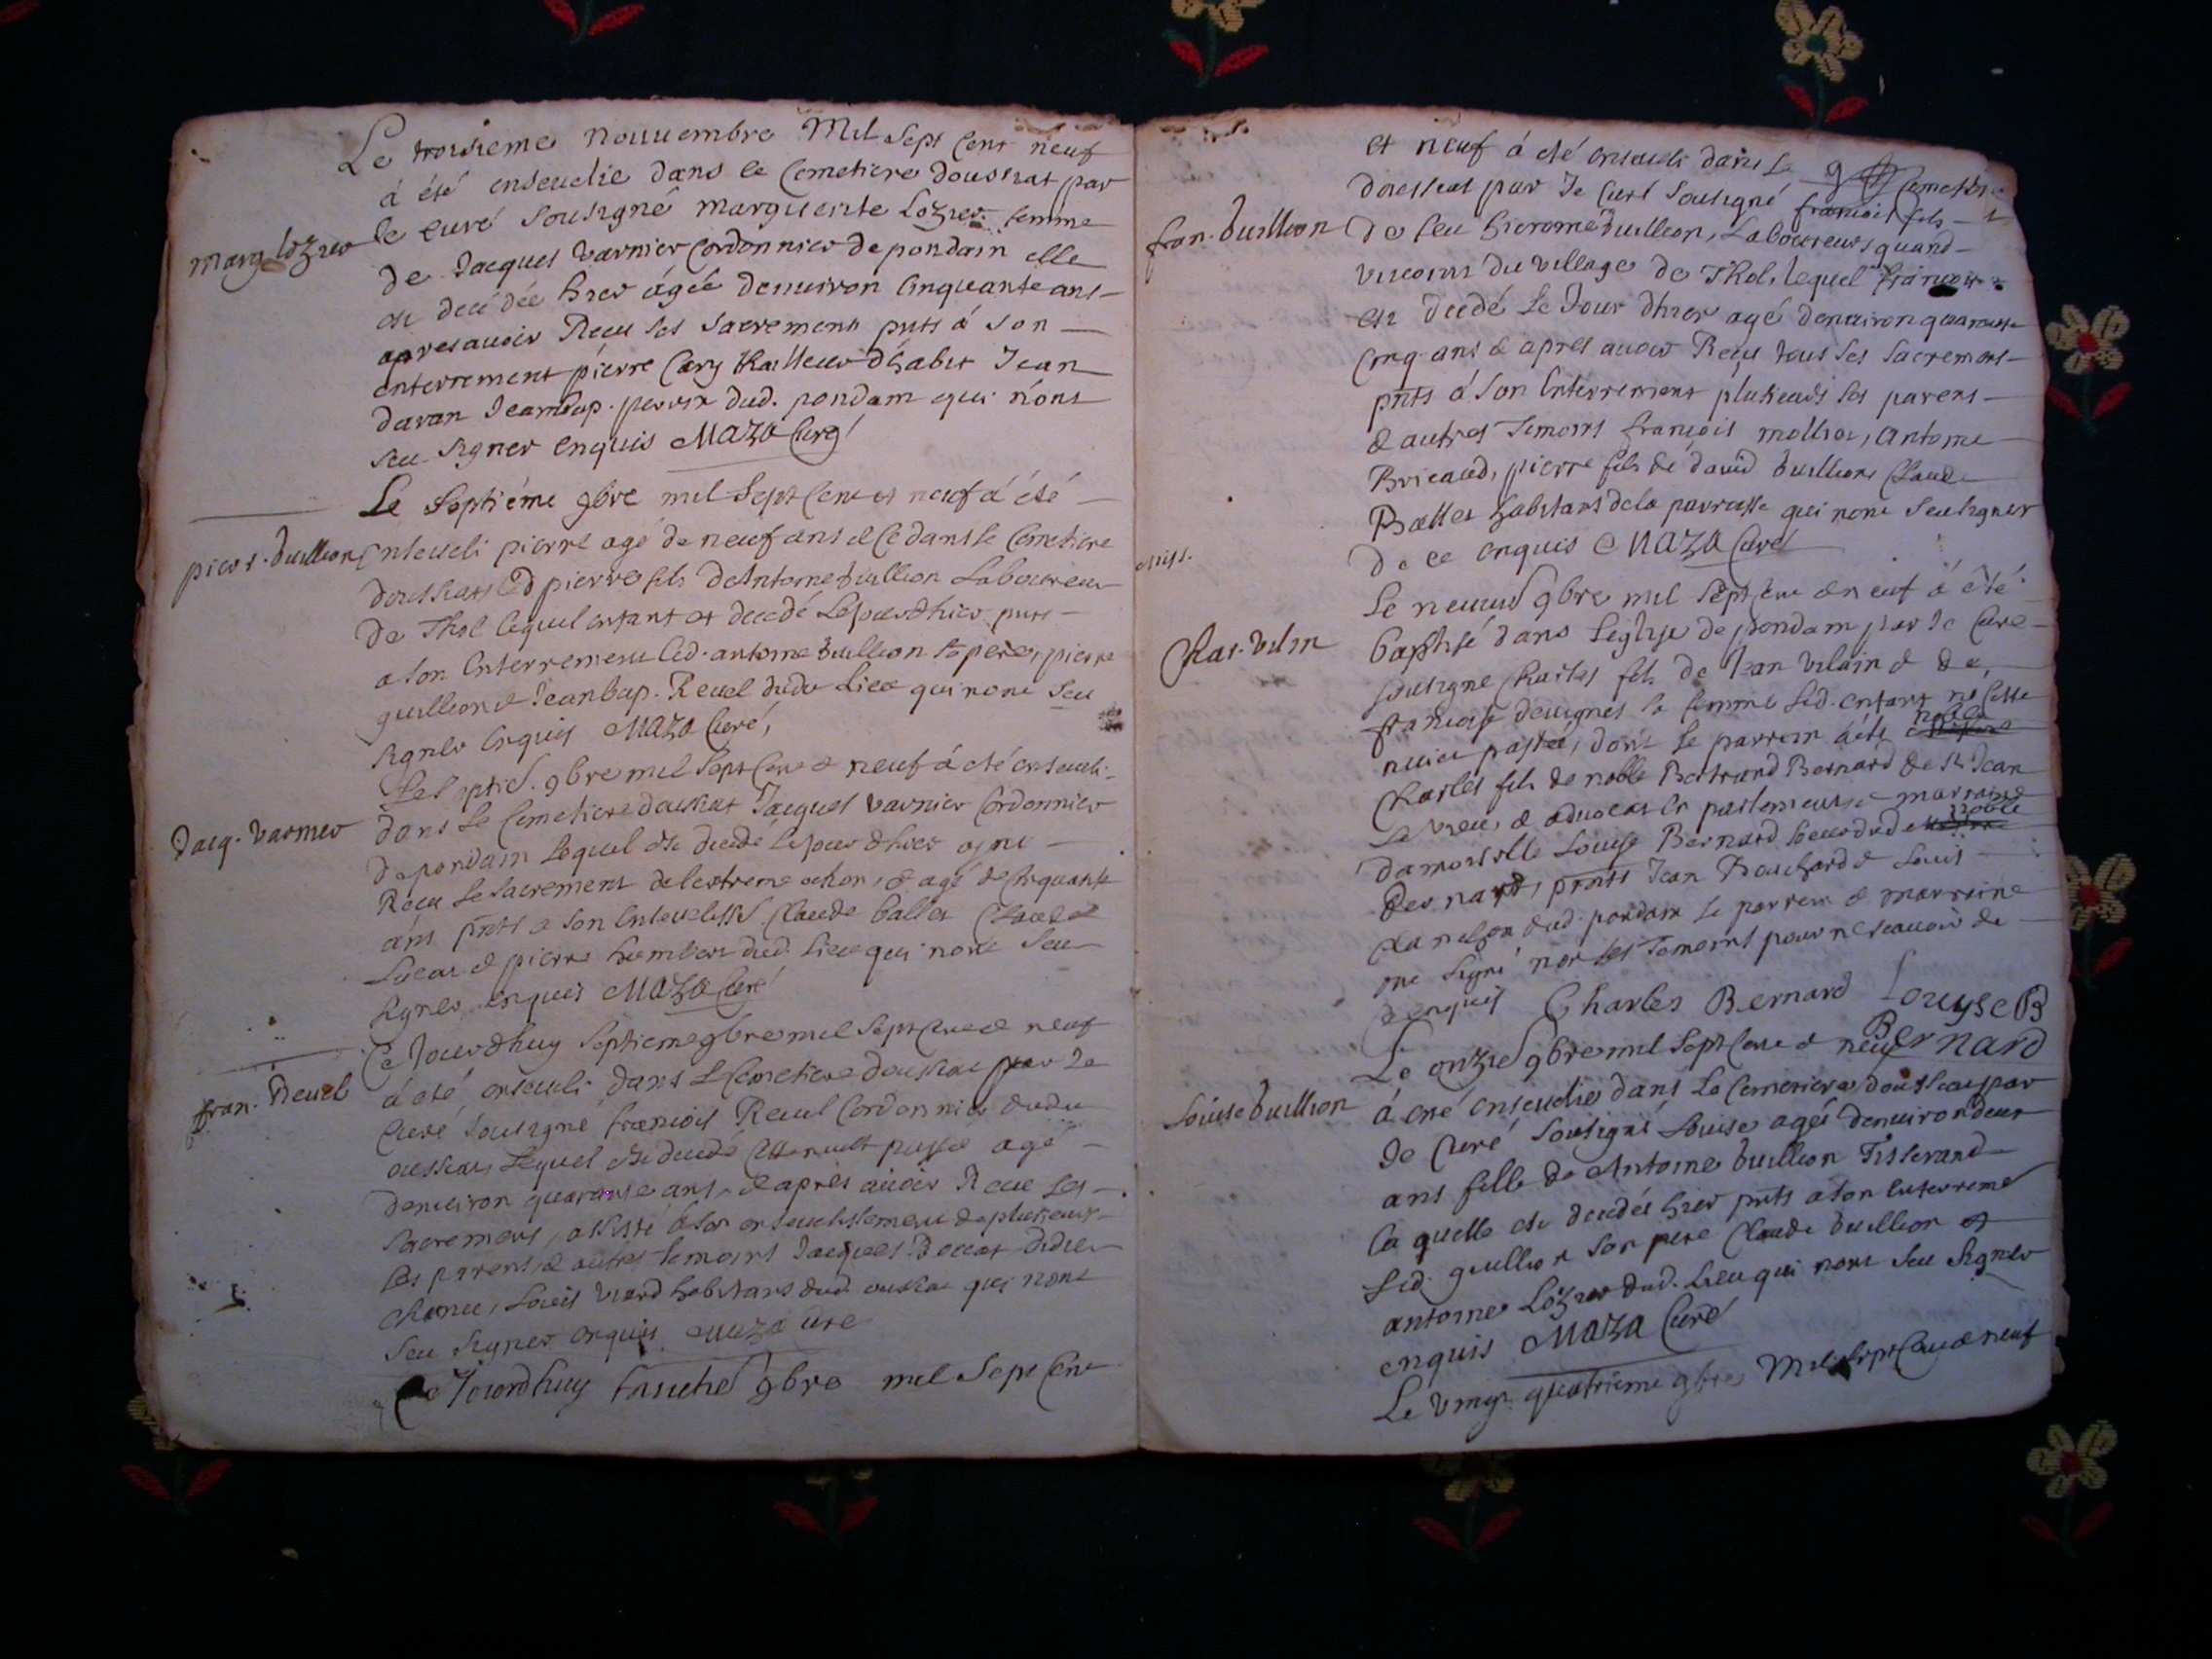 Le troisieme nouuembre Mil sept Cent neuf
à été enseuelie dans le Cemetiere doussiat par
marg. lozier
le curé sousigné marguerite Lozier femme
de Jacques varnier Cordonnier de pondain elle
est decédée hier agée denuiron Cinquante ans
apres auoir Receu ses sacrements pnts à son
enterrement pierre Cary tailleur d'habit Jean
dauan Jeanbap. perrin dud. pondain qui n'ont
sceu signer enquis MAZA Curé
Le septiéme 9bre mil sept Cent et neuf à été
pierr. Vuillion
enseueli pierre agé de neuf ans et dans le Cemetiere
doussiat led pierre fils de Antoine Vuillion Laboureur
de Thol lequel enfant est decedé le jour d'hier pnts
a son Enterrement led. antoine Vuillion son pere, pierre
guillion & Jeanbap. Reuel dudt Lieu qui n'ont sceu
signer enquis MAZA Curé,
Le septie. 9bre mil sept Cent & neuf à été enseueli
Jacq. varnier
dans le Cemetiere doussiat Jacques varnier Cordonnier
de pondain lequel est decedé le jour d'hier ayant
Receu le sacrement de lextreme oction, & agé de Cinquante
ans pnts a son Enseueliss. Claude ballet Claude
Lucas & pierre humbert dud. Lieu qui n'ont sceu
signer enquis MAZA Curé
Ce Jourdhuy septieme 9bre mil sept Cent & neuf
fran. Reuel
à eté enseueli dans le Cemetiere doussiat par le
Curé sousigné francois Reuel Cordonnier dudt
oussiat, lequel est decedé Cette nuit passée agé
denuiron quarante ans & apres auoir Receu les
sacremens, assisté à son enseuelissement de plusieurs
ses parens & autres temoins Jacques Didier
Louis viard habitans dud. oussiat qui n'ont
sceu signer enquis MAZA Curé
Ce Jourdhuy huitie 9bre mil sept Cent
et neuf á eté enseueli dans le Cemetiere
doussiat par le Curé sousigné francois fils
fran. Vuillion
de feu hierome Vuillion, Laboureur quand
viuoint du village de Thol, lequel francois
est decedé le Jour d'hier agé denuiron quarante
Cinq ans & apres auoir Reçu tous ses sacremens
pnts à son Enterrement plusieurs ses parens
& autres Temoins francois mollion, antoine
Bricaud, pierre fils de dauid Vuillion, Claude
Ballet habitans de la parroisse qui n'ont sceu signer
de ce enquis MAZA Curé
Le neuuie 9bre mil sept Cent & neuf à été
Char. vilin
baptisé dans l'eglise de pondain par le Curé
sousigne Charles fils de Jean vilain & de
francoise deuignes sa femme led. enfant né Cette
nuict passée, dont le parrein à eté noble
Charles fils de noble Bertrand Bernard de St Jean
le vieu, & aduocat en parlement & marraine
damoiselle Louise Bernard soeur dud noble
Bernard, pnts Jean Bouchard & Louis
dud. pondain le parrein & marraine
ont signé non les Temoins pour ne scauoir de
ce enquis Charles Bernard Louyse B
BERNARD
Le onzie 9bre mil sept Cent & neuf
Louise Vuillion
à eté enseuelie dans le Cemetiere doussiat par
le Curé sousigné Louise agée denuiron deux
ans fille de Antoine Vuillion Tisserand
la quelle est decedée hier pnts a son Enterreme
led. guillion son pere Claude Vuillion et
antoine Lozier dud. Lieu qui n'ont sceu signer
enquis MAZA Curé
Le vingt quatrieme 9bre Mil sept Cent & neuf